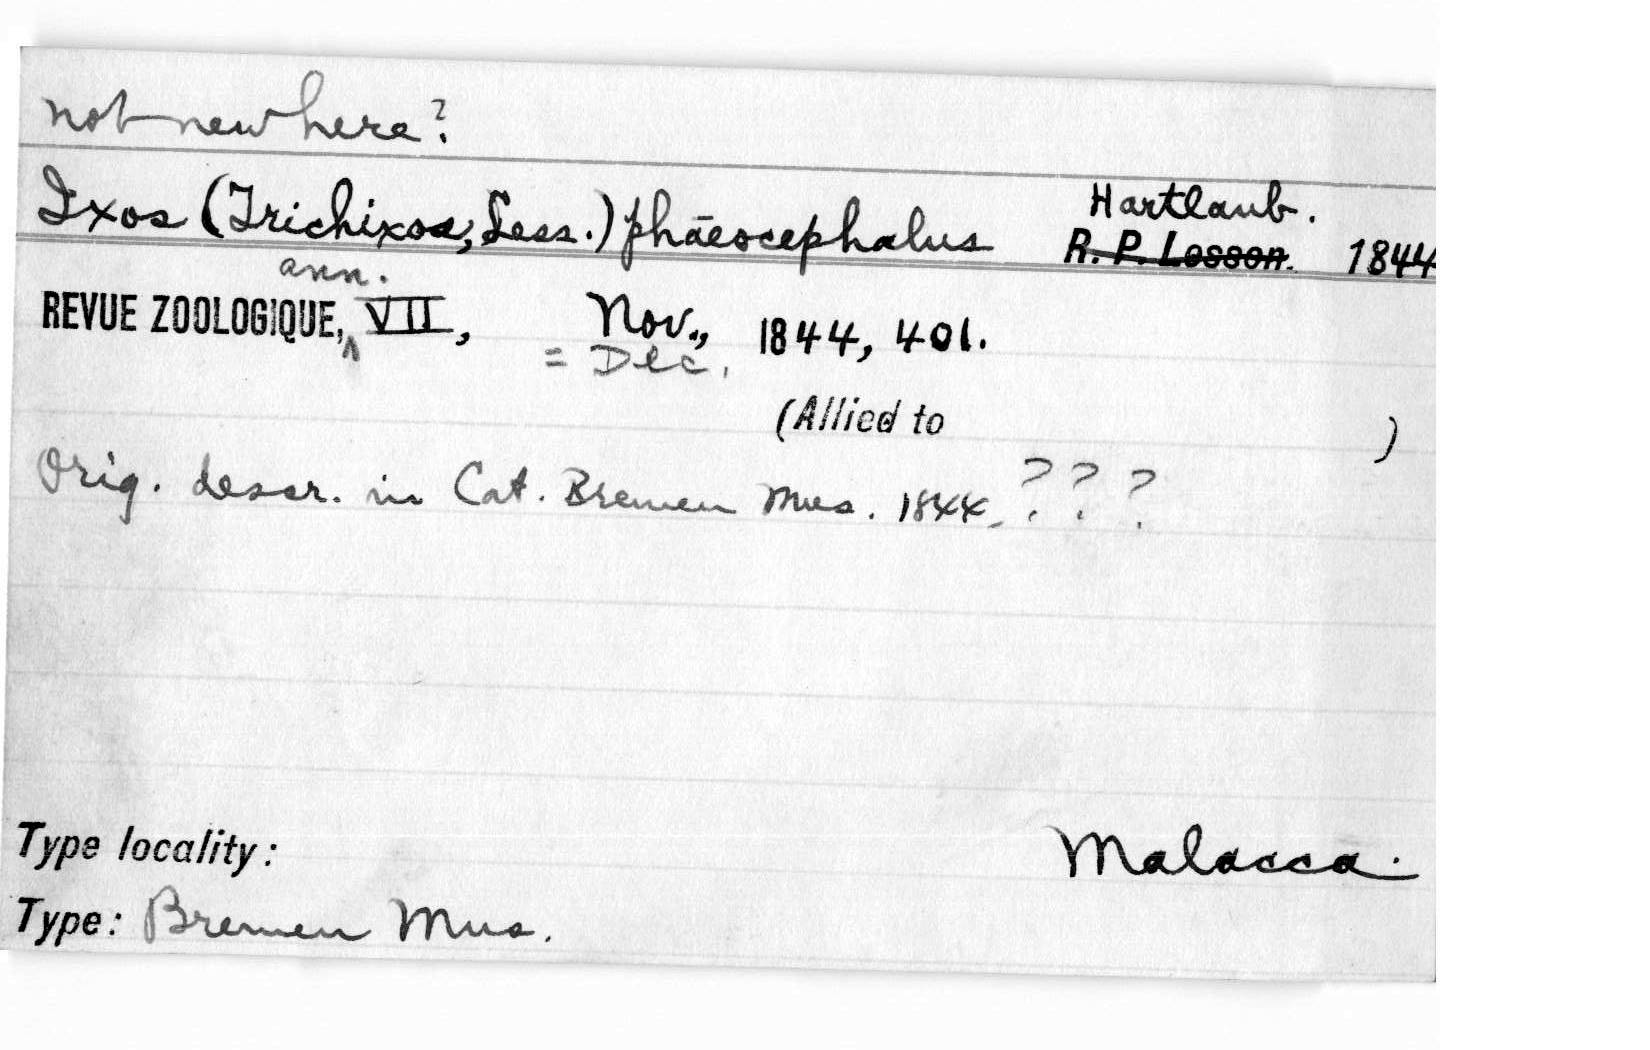 not new here?
Ixos (Trichixos, Less.) phāeocephalus Hartlaub.
R. P. Lesson. 1844
ann.
REVUE ZOOLOGIQUE, VII, Nov., 1844, 401.
= Dec.
(Allied to )
Orig. descr. in Cat. Bremen Mus. 1844. ? ? ?
Type locality: Malacca.
Type: Bremen Mus.